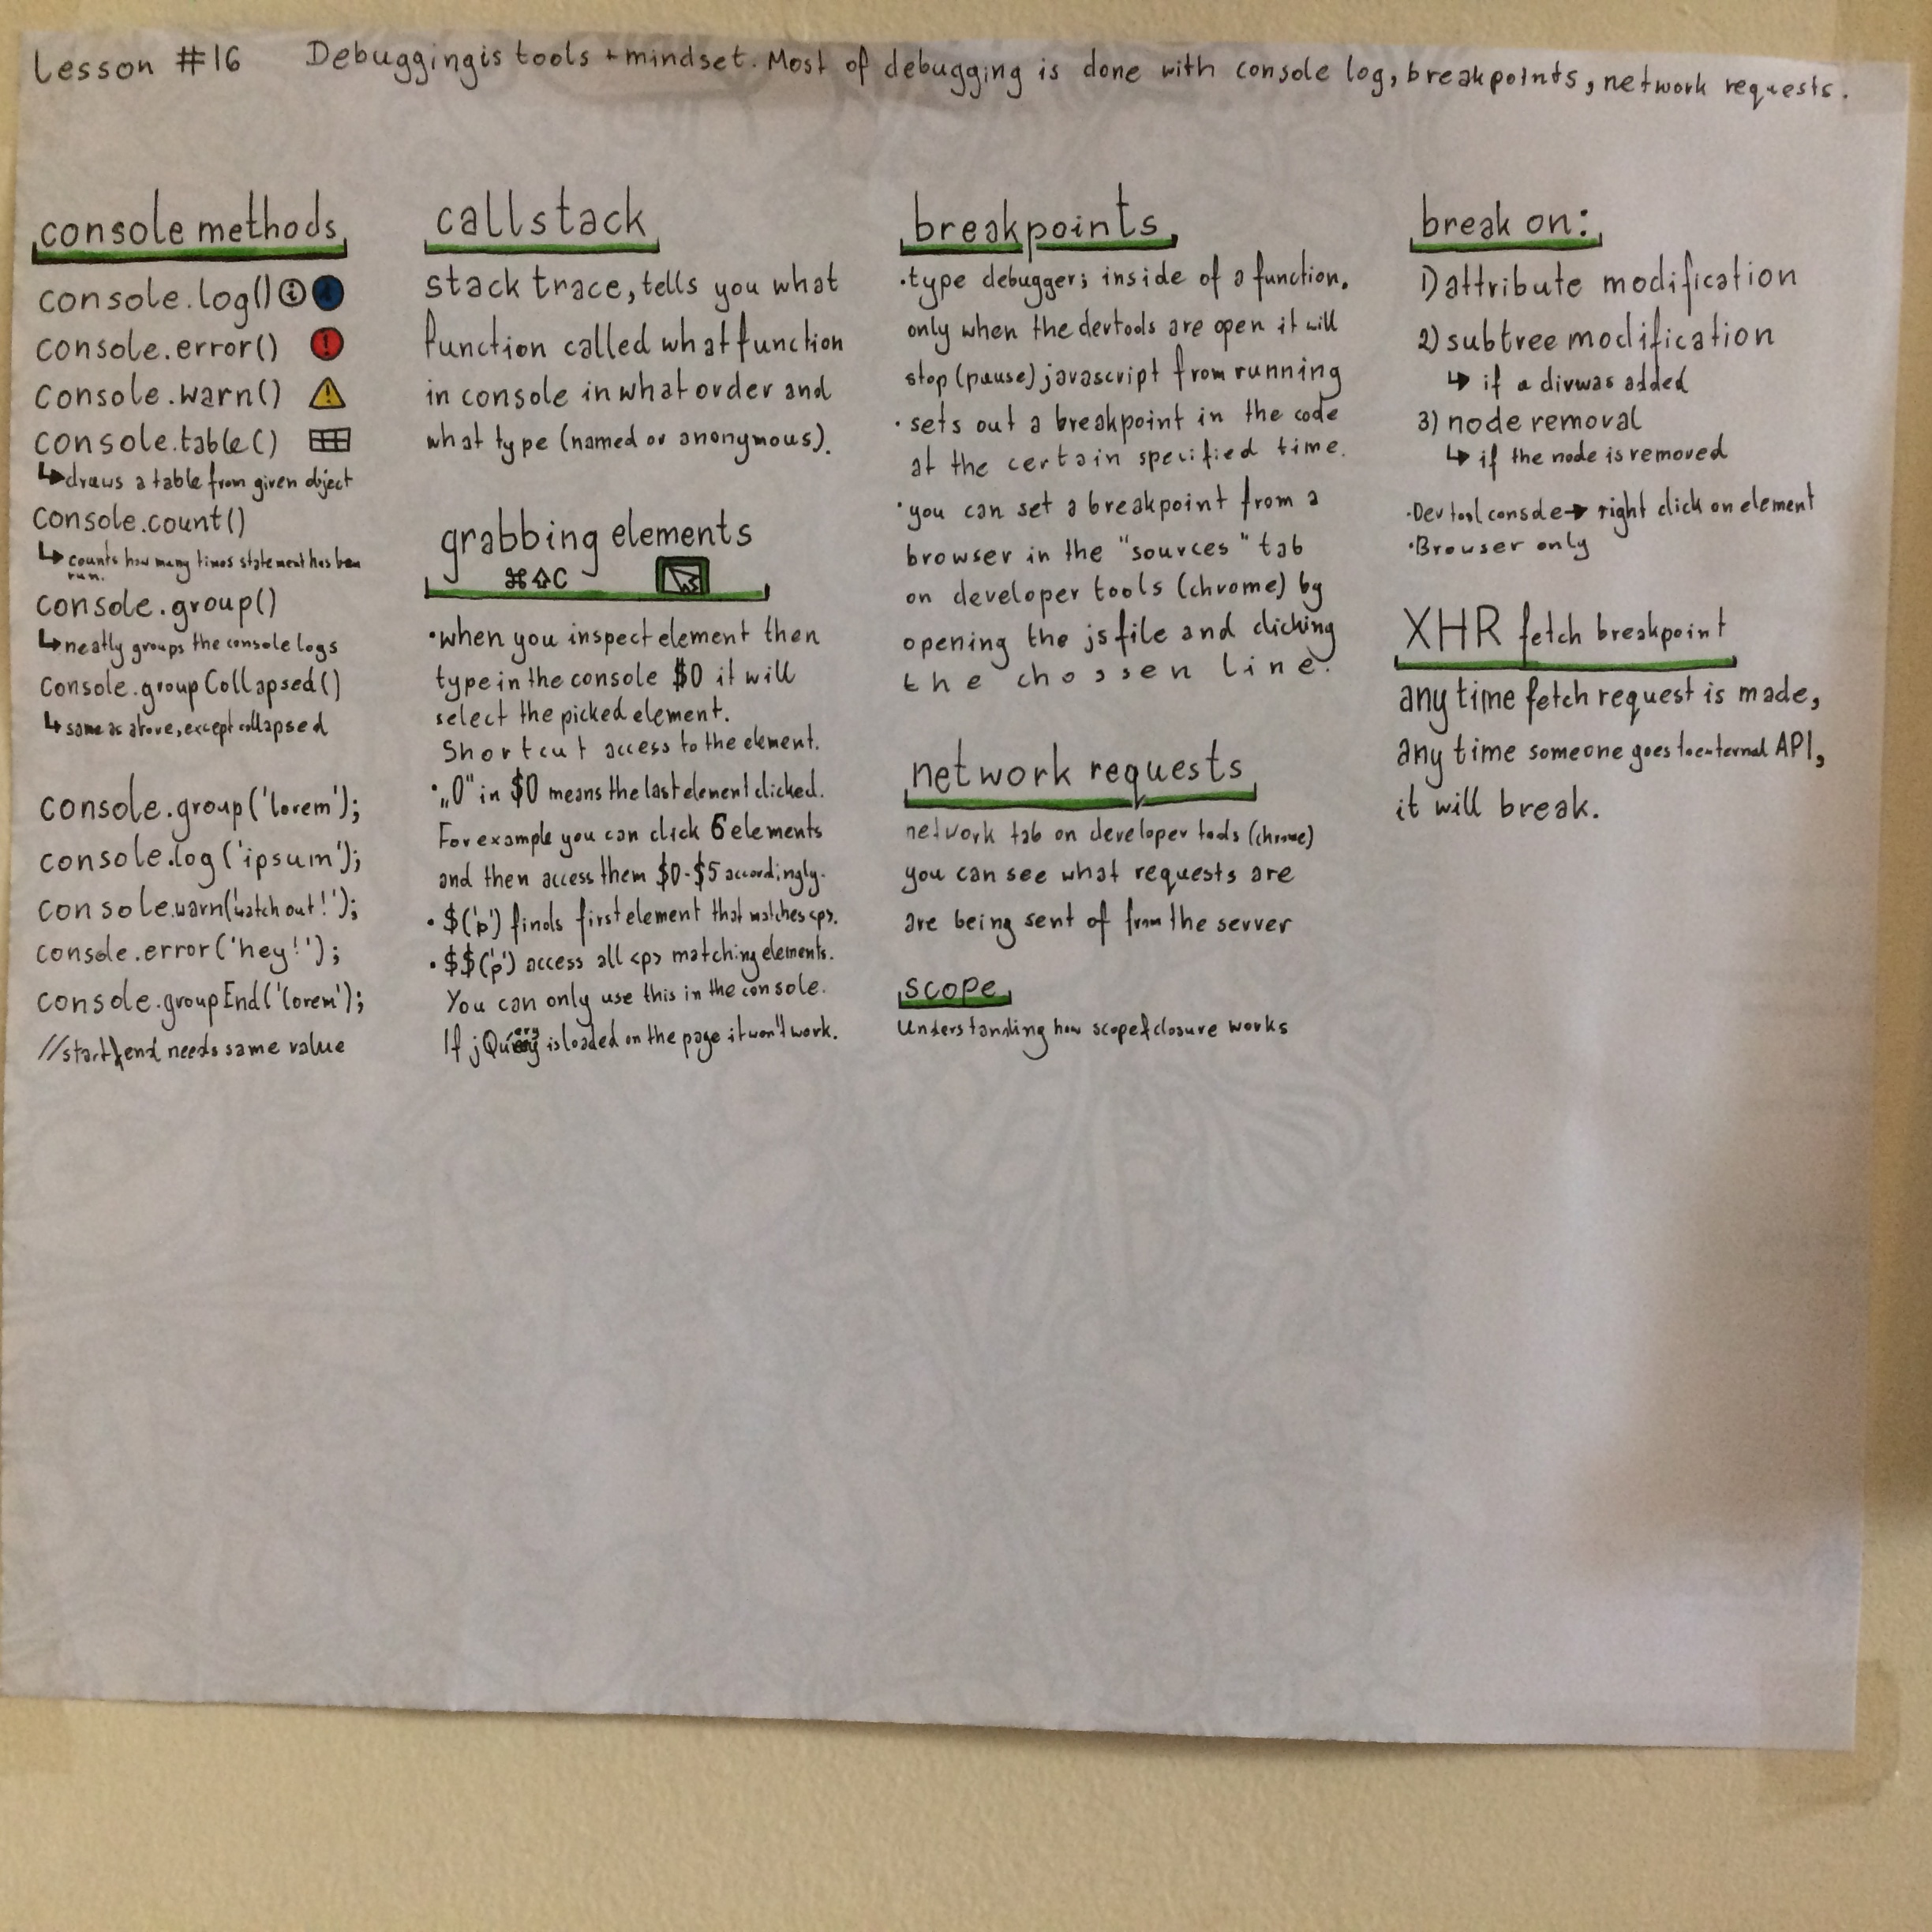 Lesson #16 Debuggingis tools + mindset. Most of debugging is done with console log, breakpoints, network requests.
console methods
console.log()
console.error()
console.warn()
console.table()
↳draws a table from given object
console.count()
↳counts how many times statement has been
run.
console.group()
↳neatly groups the console logs
console.groupCollapsed()
↳same as above, except collapsed
console.group('lorem');
console.log('ipsum');
console.warn('watch out!');
console.error('hey!');
console.groupEnd('lorem');
//start\end needs same value
callstack
stack trace, tells you what
function called what function
in console in what order and
what type (named or anonymous).
grabbing elements
⌘⇧C
•when you inspect element then
type in the console $0 it will
select the picked element.
Shortcut access to the element.
•„0" in $0 means the last element clicked.
For example you can click 6 elements
and then access them $0-$5 accordingly.
•$('p') finds first element that matches <p>.
•$$('p') access all <p> matching elements.
You can only use this in the console.
If jQuery is loaded on the page it won't work.
breakpoints
•type debugger; inside of a function.
only when the devtools are open it will
stop (pause) javascript from running
•sets out a breakpoint in the code
at the certain specified time.
•you can set a breakpoint from a
browser in the "sources" tab
on developer tools (chrome) by
opening the js file and clicking
the choosen line.
network requests
network tab on developer tools (chrome)
you can see what requests are
are being sent of from the server
scope
Understanding how scope&closure works
break on:
1) attribute modification
2) subtree modification
↳ if a div was added
3) node removal
↳ if the node is removed
•Dev tool console→ right click on element
•Browser only
XHR fetch breakpoint
any time fetch request is made,
any time someone goes to external API,
it will break.